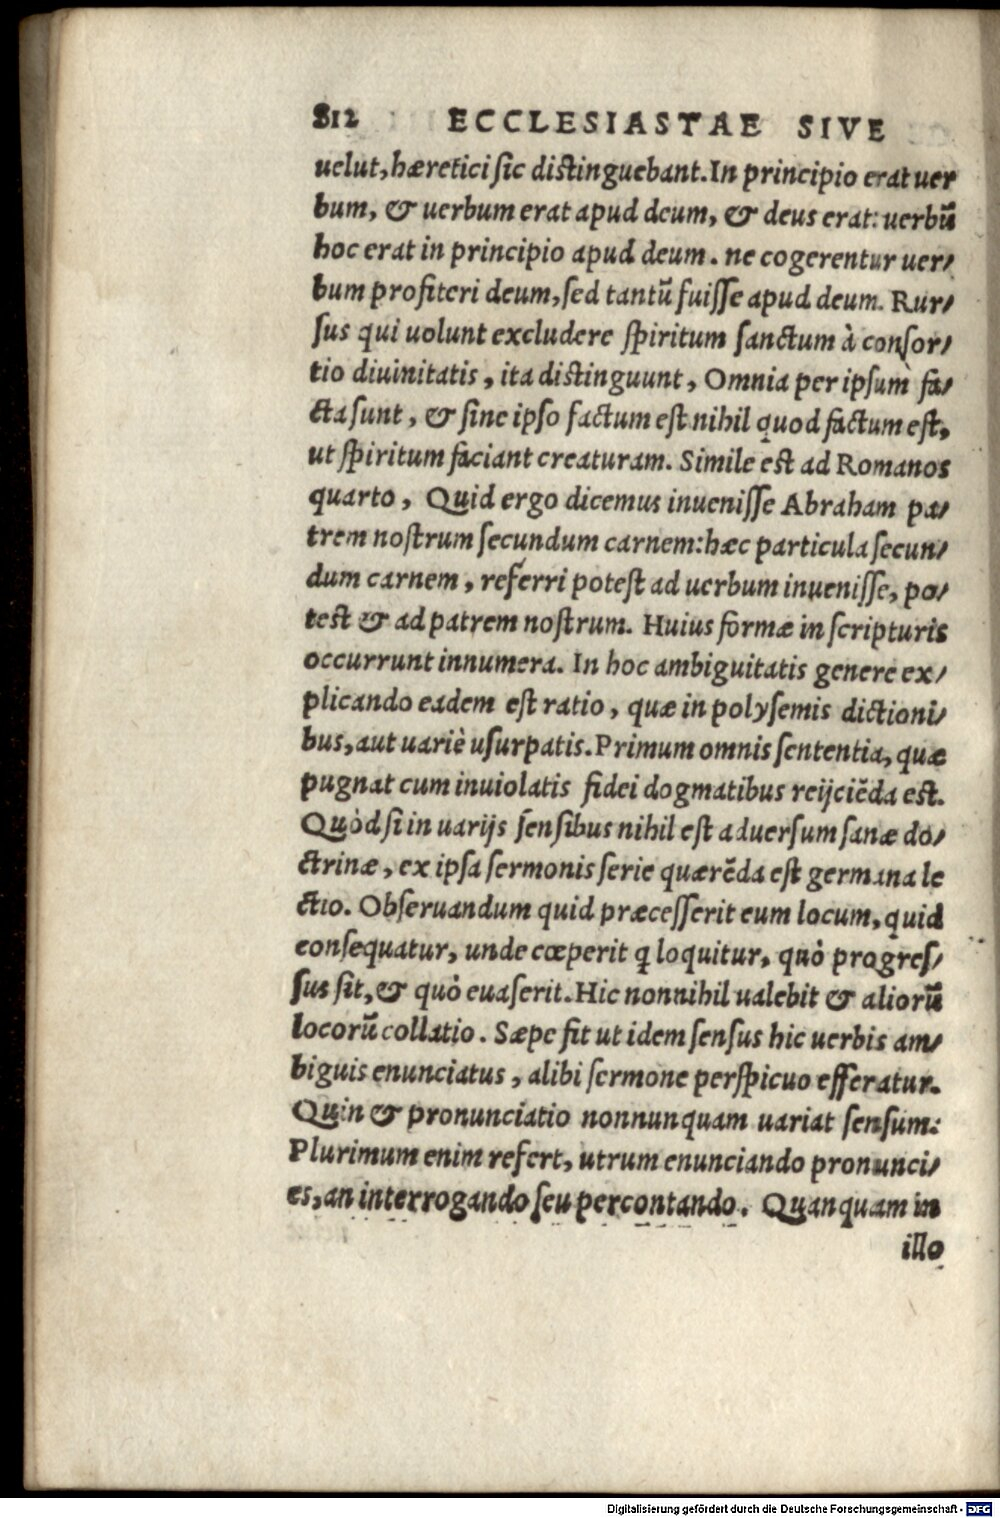 812 ECCLESIASTAE SIVE
uelut, hæretici sic distinguebant. In principio erat uer
bum, & uerbum erat apud deum, & deus erat: uerbũ
hoc erat in principio apud deum. ne cogerentur uer/
bum profiteri deum, sed tantũ fuisse apud deum. Rur/
sus qui uolunt excludere spiritum sanctum à consor/
tio diuinitatis, ita distinguunt, Omnia per ipsum fa/
cta sunt, & sine ipso factum est nihil quod factum est,
ut spiritum faciant creaturam. Simile est ad Romanos
quarto, Quid ergo dicemus inuenisse Abraham pa/
trem nostrum secundum carnem: hæc particula secun/
dum carnem, referri potest ad uerbum inuenisse, po/
test & ad patrem nostrum. Huius formæ in scripturis
occurrunt innumera. In hoc ambiguitatis genere ex/
plicando eadem est ratio, quæ in polysemis dictioni/
bus, aut uariè usurpatis. Primum omnis sententia, quæ
pugnat cum inuiolatis fidei dogmatibus reijciẽda est.
Quòd si in uarijs sensibus nihil est aduersum sanæ do/
ctrinæ, ex ipsa sermonis serie quærẽda est germana le
ctio. Obseruandum quid præcesserit eum locum, quid
consequatur, unde cœperit q loquitur, quò progres/
sus sit, & quò euaserit. Hic nonnihil ualebit & aliorũ
locorũ collatio. Sæpe fit ut idem sensus hic uerbis am/
biguis enunciatus, alibi sermone perspicuo efferatur.
Quin & pronunciatio nonnunquam uariat sensum:
Plurimum enim refert, utrum enunciando pronunci/
es, an interrogando seu percontando. Quanquam in
illo
Digitalisierung gefördert durch die Deutsche Forschungsgemeinschaft - DFG